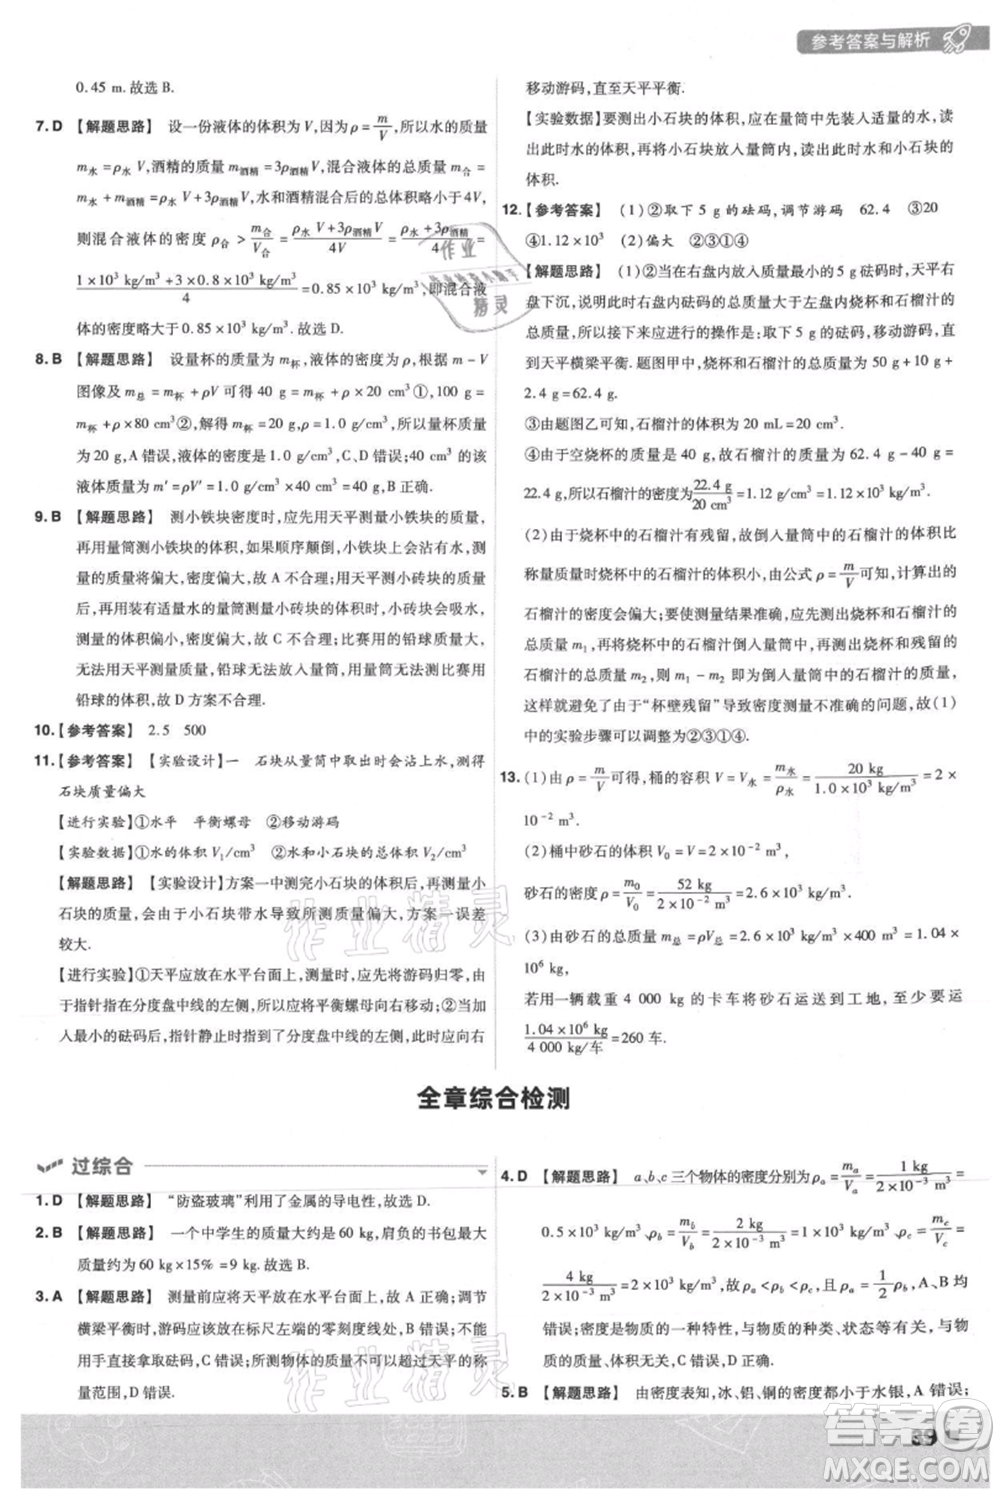 参考答案与解析
0.45 m.故选 B.
7. D 【解题思路】 设一份液体的体积为 V,因为 ρ=m/V,所以水的质量
m水 = ρ水 V,酒精的质量 m酒精 = 3ρ酒精 V,混合液体的总质量 m合 =
m水 + m酒精 = ρ水 V+3ρ酒精 V,水和酒精混合后的总体积略小于 4V,
则混合液体的密度 ρ合 = m合/V合 = (ρ水 V+3ρ酒精 V)/4V = (ρ水+3ρ酒精)/4 =
(1×10³ kg/m³+3×0.8×10³ kg/m³)/4 = 0.85×10³ kg/m³,即混合液
体的密度略大于 0.85×10³ kg/m³.
8. B 【解题思路】 设量杯的质量为 m杯,液体的密度为 ρ,根据 m - V
图像及 m总 = m杯 + ρV 可得 40 g = m杯 + ρ×20 cm³①,100 g =
m杯 + ρ×80 cm³②,解得 m杯 = 20 g,ρ=1.0 g/cm³,所以量杯质量
为 20 g,A 错误,液体的密度为 1.0 g/cm³,C、D 错误;40 cm³ 的该
液体质量 m′ = ρV′ = 1.0 g/cm³×40 cm³ = 40 g,B 正确.
9. B 【解题思路】 测小铁块密度时,应先用天平测小铁块的质量,
再用量筒测小铁块的体积,如果顺序颠倒,小铁块上会沾有水,测
量的质量偏大,密度偏大,故 A 不合理;用天平测小砖块的质量,
再用装有适量水的量筒测小砖块的体积,由于小砖块会吸水,
测量的体积偏小,密度偏大,故 C 不合理;比赛用的铅球质量大,
无法用天平测量质量,铅球无法放入量筒,也无法用量筒测比赛用
铅球的体积,故 D 方案不合理.
10. 【参考答案】 2.5 500
11. 【参考答案】 【实验设计】一 石块从量筒中取出时会沾上水,测得
石块质量偏大
【进行实验】①水平 平衡螺母 ②移动游码
【实验数据】①水的体积 V₁/cm³ ②水和小石块的总体积 V₂/cm³
【解题思路】 【实验设计】方案一中测完小石块的体积后,再测量小
石块的质量,会由于小石块带水导致所测质量偏大,方案一误差
较大.
【进行实验】①天平应放在水平台面上,测量时,应先将游码归零,由
于指针指在分度盘中线的左侧,所以应将平衡螺母向右移动;②当加
入最小的砝码后,指针静止时指到了分度盘中线的左侧,此时应向右
移动游码,直至天平平衡.
【实验数据】要测出小石块的体积,应在量筒中先装入适量的水,读
出此时水的体积,再将小石块放入量筒内,读出此时水和小石块的
体积.
12. 【参考答案】 (1)②取下 5 g 的砝码,调节游码 62.4 ③20
④1.12×10³ (2)偏大 ②③①④
【解题思路】 (1)②往天平的右盘内放入最小的 5 g 砝码时,天平右
盘下沉,说明此时右盘内砝码的总质量大于左盘内烧杯和石榴汁的总
质量,所以接下来应进行的操作是:取下 5 g 的砝码,移动游码,直
到天平横梁平衡.题图甲中,烧杯和石榴汁的总质量为 50 g+10 g+
2.4 g=62.4 g.
③由题图乙可知,石榴汁的体积为 20 mL=20 cm³.
④由于空烧杯的质量为 40 g,则石榴汁的质量为 62.4 g-40 g=
22.4 g,所以石榴汁的密度为 22.4 g/20 cm³=1.12 g/cm³=1.12×10³ kg/m³.
(2)由于烧杯中的石榴汁有残留,故倒入量筒中的石榴汁的体积比
称量质量时烧杯中的石榴汁的体积小,如由公式 ρ=m/V 可知,计算出的
石榴汁的密度会偏大;要使测量结果准确,应先测出烧杯和石榴汁的
总质量 m₁,再将烧杯中的石榴汁倒入量筒中,测出烧杯和残留的
石榴汁的总质量 m₂,则 m₁-m₂ 即为倒入量筒中的石榴汁的质量,
这样就解决了由于“杯壁残留”导致密度测量不准确的问题,故(1)
中的实验步骤可以调整为②③①④.
13. (1)由 ρ=m/V 可得,桶的容积 V=V水=m水/ρ水=20 kg/(1.0×10³ kg/m³)=2×
10⁻² m³.
(2)桶中砂石的体积 V₀=V=2×10⁻² m³,
砂石的密度 ρ=m₀/V₀=52 kg/(2×10⁻² m³)=2.6×10³ kg/m³.
(3)由砂石的总质量 m总=ρV总=2.6×10³ kg/m³×400 m³=1.04×
10⁶ kg,
若用一辆载重 4 000 kg 的卡车将砂石运送到工地,至少要运
1.04×10⁶ kg/(4 000 kg/车)=260 车.
全章综合检测
过综合
1. D 【解题思路】 “防盗玻璃”利用了金属的导电性,故选 D.
2. B 【解题思路】 一个中学生的质量大约为 60 kg,肩负的书包最大
质量约为 60 kg×15%=9 kg.故选 B.
3. A 【解题思路】 测量前应将天平放在水平台面上,A 正确;调节
横梁平衡时,游码应该放在标尺左端的零刻度线处,B 错误;不能
用手直接拿取砝码,C 错误;所测物体的质量不能超过天平的称
量范围,D 错误.
4. D 【解题思路】 a、b、c 三个物体的密度分别为 ρa=ma/Va=1 kg/(2×10⁻³ m³)=
0.5×10³ kg/m³、ρb=mb/Vb=2 kg/(2×10⁻³ m³)=1×10³ kg/m³、ρc=mc/Vc=
4 kg/(2×10⁻³ m³)=2×10³ kg/m³,故 ρa<ρb<ρc,且 ρa=1/2 ρb,A、B、C
错误;密度是物质的一种特性,与物质的种类、状态等有关,与物
体的质量、体积无关,D 正确.
5. B 【解题思路】 由密度表知,冰、铝、铜的密度都小于水银,A 错误;
39
作业精灵
作业精灵
作业精灵
答案圈
MXQE.COM